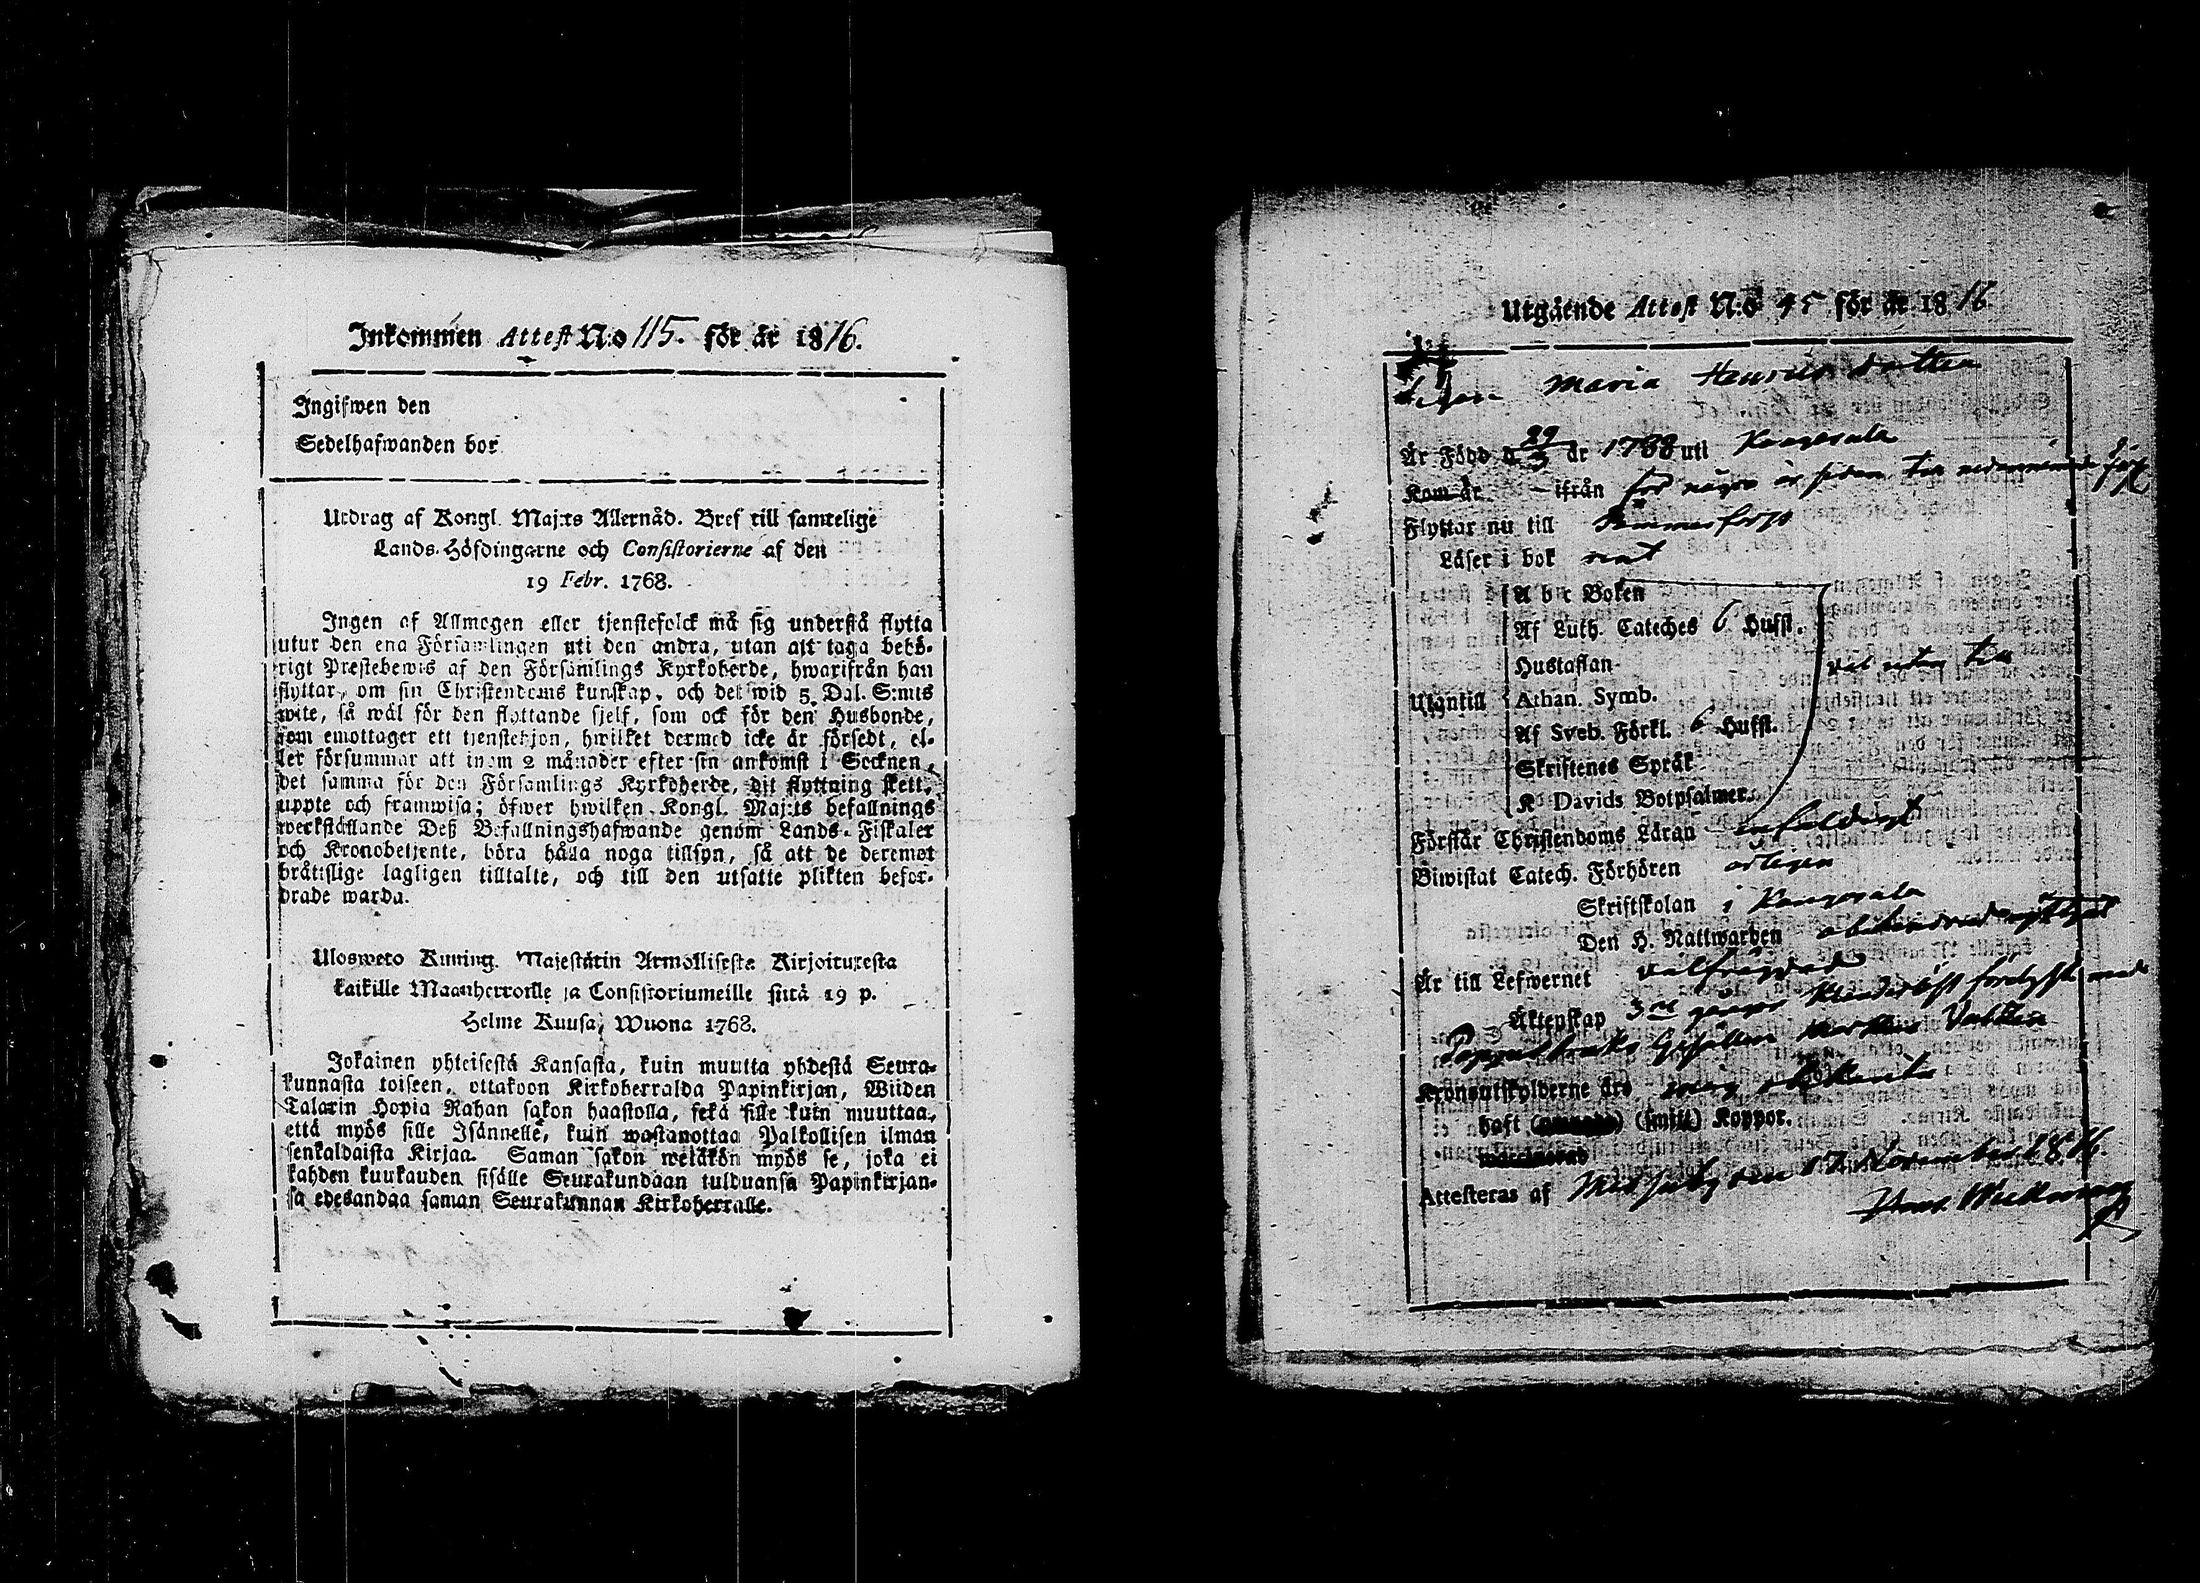 Inkommen Attest N:o 115. för år 1816.
Ingifwen den
Sedelhafwanden bor
Utdrag af Kongl. Maj:ts Allernåd. Bref till samtelige
Lands-Höfdingarne och Consistorierne af den
19 Febr. 1768.
Ingen af Allmogen eller tjenstefolck må sig understå flytta
utur den ena Församlingen uti den andra, utan att taga behö-
rigt Prestebewis af den Församlings Kyrkoherde, hwarifrån han
flyttar, om sin Christendoms kunskap, och det wid 5 Dal. S:mts
wite, så wäl för den flyttande sjelf, som ock för den Husbonde,
som emottager ett tjenstehjon, hwilket dermed icke är försedt, el-
ler försummar att inom 2 månader efter sin ankomst i Socknen,
det samma för den Församlings Kyrkoherde, dit flyttning skett,
uppte och framwisa; öfwer hwilken Kongl. Maj:ts befallnings
werkställande Deß Befallningshafwande genom Lands-Fiskaler
och Kronobetjente, böra hålla noga tillsyn, så att de deremot
bråtislige lagligen tilltalte, och till den utsatte plikten befor-
drade warda.
Ulosweto Kuning. Majestätin Armollisesta Kirjoituxesta
kaikille Maanherroille ja Consistoriumeille siitä 19 p.
Helme Kuusa, Wuona 1768.
Jokainen yhteisestä Kansasta, kuin muutta yhdestä Seura-
kunnasta toiseen, ottakoon Kirkoherralda Papinkirjan, Wiiden
Talarin Hopia Rahan sakon haastolla, sekä sille kuin muuttaa,
että myös sille Isännelle, kuin wastanottaa Palkollisen ilman
senkaldaista Kirjaa. Saman sakon wetäkön myös se, joka ei
kahden kuukauden sisälle Seurakundaan tulduansa Papinkirjan-
sa edesandaa saman Seurakunnan Kirkoherralle.
Utgående Attest N:o 45 för år 1816
Maria Henricsdotter
Är Född d 29/3 år 1788 uti Kangasala
Kom år ifrån för några år sedan
Flyttar nu till Tammerfors
Läser i bok
A b c Boken
Af Luth. Cateches 6 Hufst.
Hustaflan
Utantill Athan. Symb.
Af Sveb. Förkl. 6 Hufst.
Skriftenes Språk
K Davids Botpsalmer.
Förstår Christendoms Läran enfaldigt
Biwistat Catech. Förhören årligen
Skriftskolan i Kangasala
Den H. Nattwarden
Är till Lefwernet välfrägdad
Äktenskap 3ne gånger förlyst med
Gesällen
Kronoutskylderne äro
haft (smitt) Koppor.
Attesteras af Messuby den 17 November 1816.